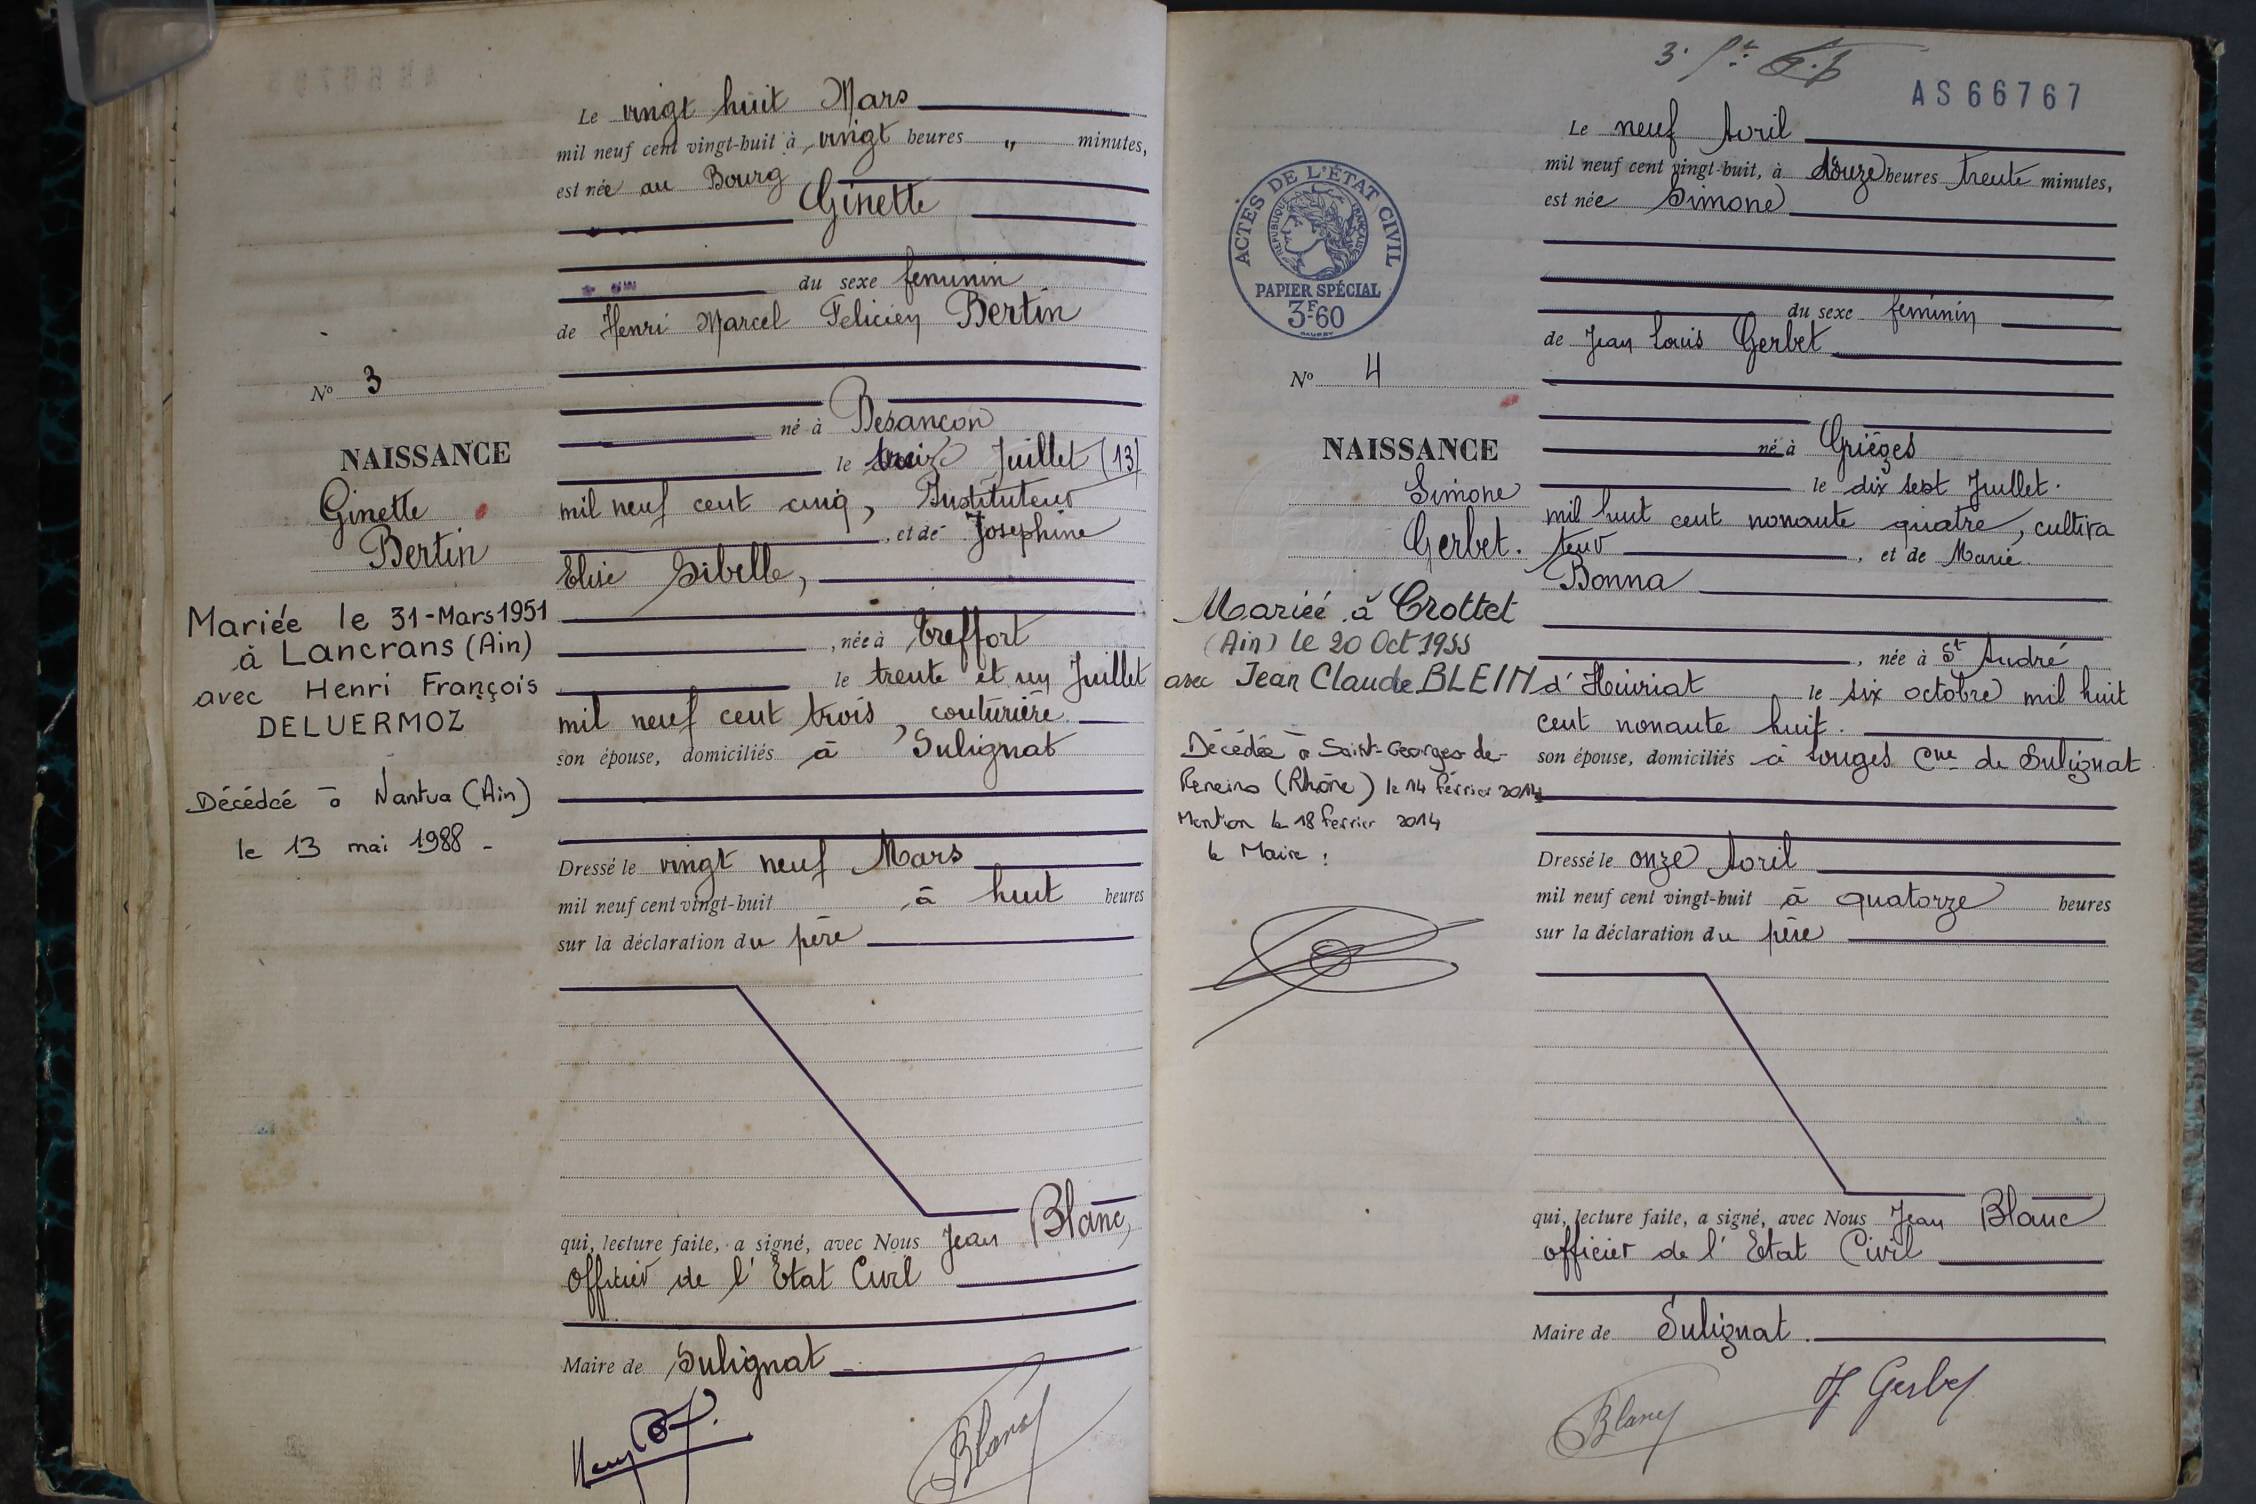 Le vingt huit Mars
mil neuf cent vingt-huit à vingt heures " minutes,
est née au Bourg
Ginette
du sexe feminin
de Henri Marcel Felicien Bertin
né à Besançon
le treize Juillet (13)
mil neuf cent cinq, Instituteur
, et de Josephine
Elise Sibelle,
, née à Treffort
le trente et un Juillet
mil neuf cent trois, couturière
son épouse, domiciliés à Sulignat
Dressé le vingt neuf Mars
mil neuf cent vingt-huit à huit heures
sur la déclaration du père
qui, lecture faite, a signé, avec Nous Jean Blanc,
Officier de l'Etat Civil
Maire de Sulignat
Blanc
No 3
NAISSANCE
Ginette
Bertin
Mariée le 31-Mars 1951
à Lancrans (Ain)
avec Henri François
DELUERMOZ
Décédée à Nantua (Ain)
le 13 mai 1988 -
AS66767
Le neuf Avril
mil neuf cent vingt-huit, à douze heures trente minutes,
est née Simone
du sexe feminin
de Jean Louis Gerbet
né à Grièges
le dix sept Juillet.
mil huit cent nonante quatre, cultiva
teur , et de Marie
Bonna
, née à St André
d'Huiriat le six octobre mil huit
cent nonante huit.
son épouse, domiciliés à Longes Cne de Sulignat
Dressé le onze Avril
mil neuf cent vingt-huit à quatorze heures
sur la déclaration du père
qui, lecture faite, a signé, avec Nous Jean Blanc
officier de l'Etat Civil
Maire de Sulignat.
Blanc
J Gerbet
ACTES DE L'ÉTAT CIVIL
RÉPUBLIQUE FRANÇAISE
PAPIER SPÉCIAL
3F60
No 4
NAISSANCE
Simone
Gerbet.
Mariée à Crottet
(Ain) le 20 Oct 1955
avec Jean Claude BLEIN
Décédée à Saint-Georges-de-
Reneins (Rhône) le 14 février 2014
Mention le 18 février 2014
le Maire :